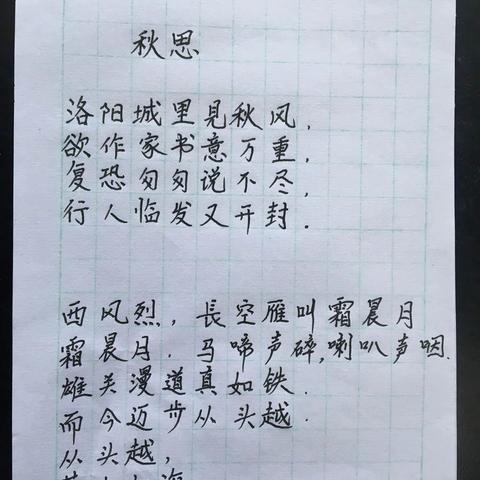 秋思
洛阳城里见秋风,
欲作家书意万重,
复恐匆匆说不尽,
行人临发又开封.
西风烈, 長空雁叫霜晨月
霜晨月. 马啼声碎,喇叭声咽.
雄关漫道真如铁.
而今迈步从头越.
从头越,